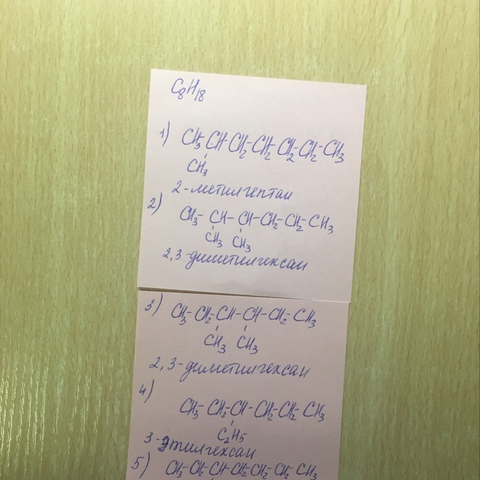 C8H18
1) CH3-CH-CH2-CH2-CH2-CH2-CH3
CH3
2-метилгептан
2) CH3-CH-CH-CH2-CH2-CH3
CH3 CH3
2,3-диметилгексан
3) CH3-CH2-CH-CH-CH2-CH3
CH3 CH3
2,3-диметилгексан
4) CH3-CH2-CH-CH2-CH2-CH3
C2H5
3-Этилгексан
5) CH3-CH2-CH-CH2-CH2-CH2-CH3